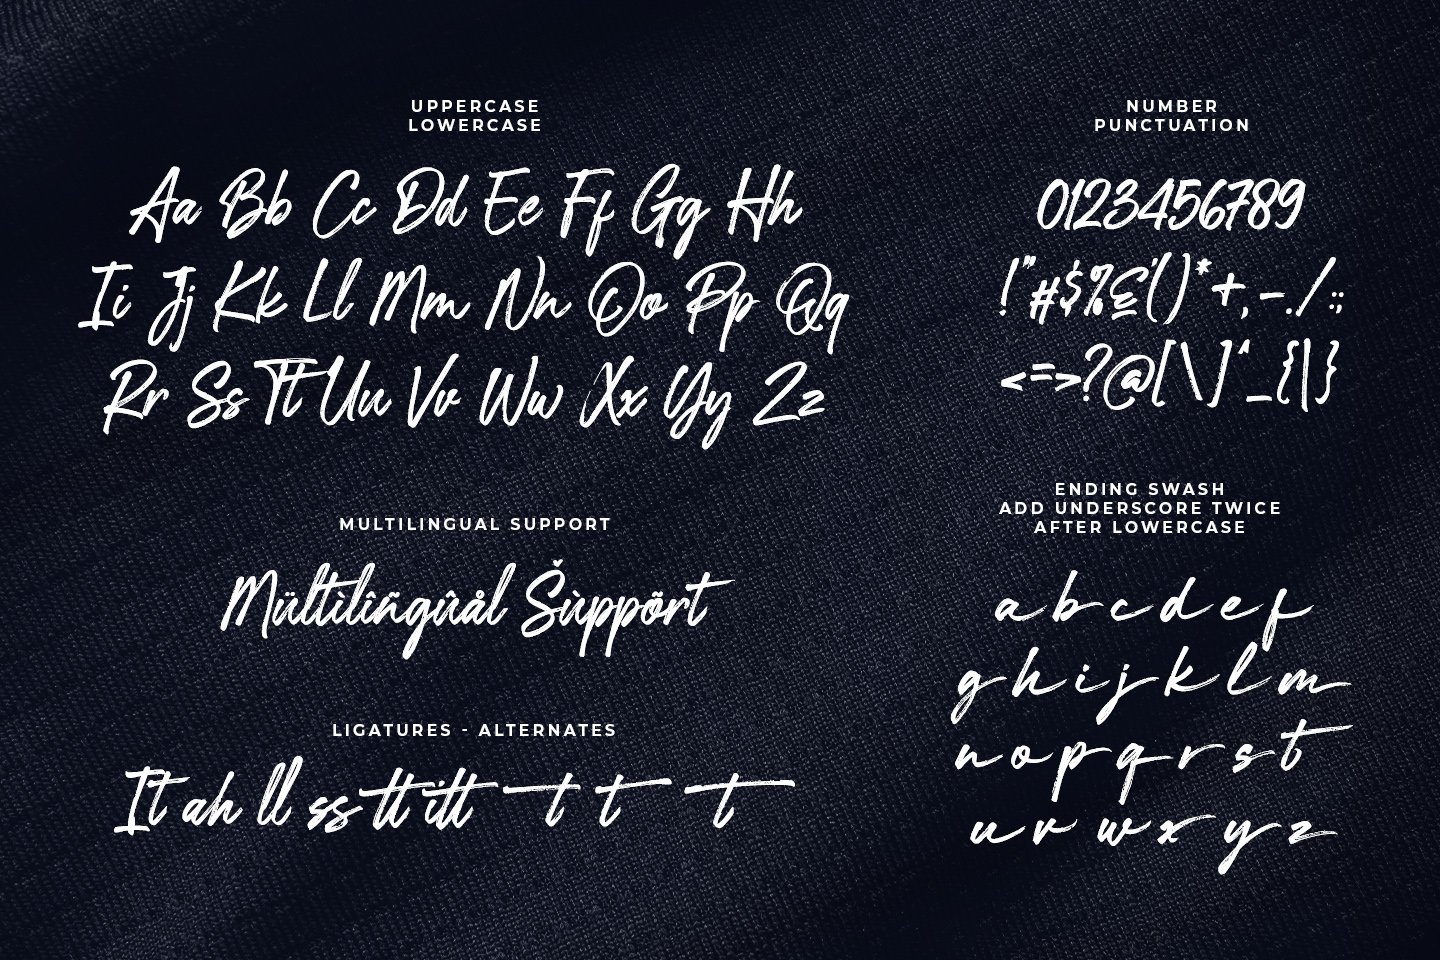 UPPERCASE
LOWERCASE
Aa Bb Cc Dd Ee Ff Gg Hh
Ii Jj Kk Ll Mm Nn Oo Pp Qq
Rr Ss Tt Uu Vv Ww Xx Yy Zz
MULTILINGUAL SUPPORT
Mültìlîñgûål Šùppõrt
LIGATURES - ALTERNATES
It ah ll ss tt itt t t t
NUMBER
PUNCTUATION
0123456789
!"#$%&'()*+,-./:;
<=>?@[\]^_{|}
ENDING SWASH
ADD UNDERSCORE TWICE
AFTER LOWERCASE
a b c d e f
g h i j k l m
n o p q r s t
u v w x y z